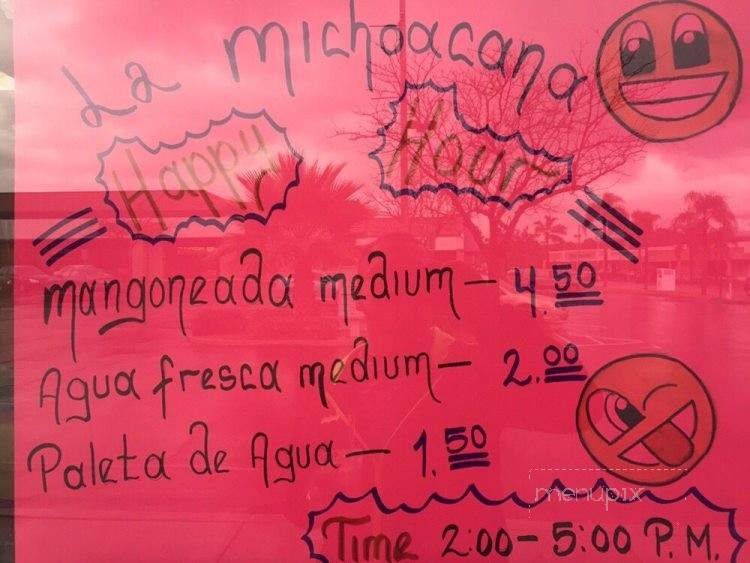 La Michoacana
Happy Hour
mangoneada medium - 4.50
Agua fresca medium - 2.00
Paleta de Agua - 1.50
menupix
Time 2:00 - 5:00 P.M.